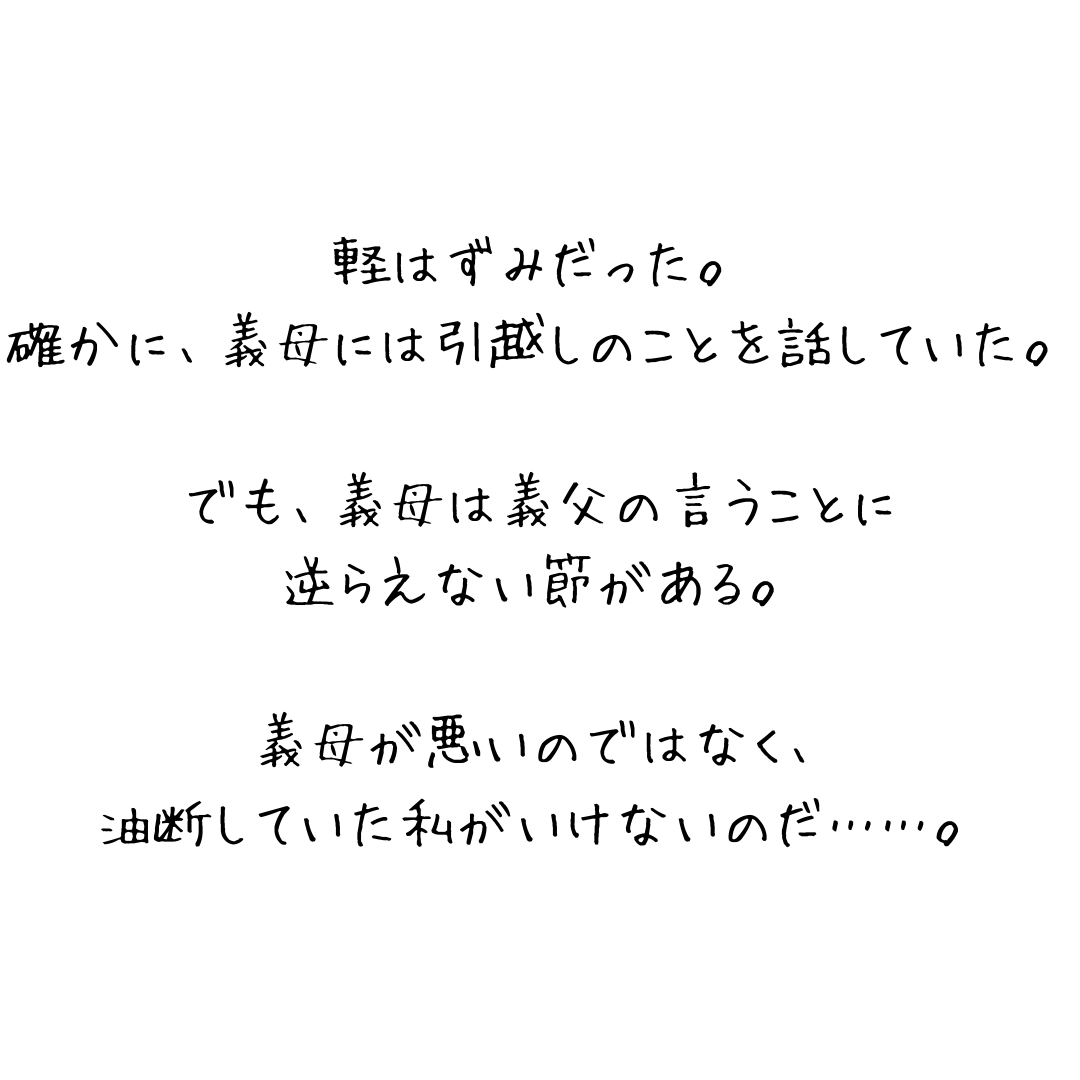 軽はずみだった。
確かに、義母には引越しのことを話していた。
でも、義母は義父の言うことに
逆らえない節がある。
義母が悪いのではなく、
油断していた私がいけないのだ……。